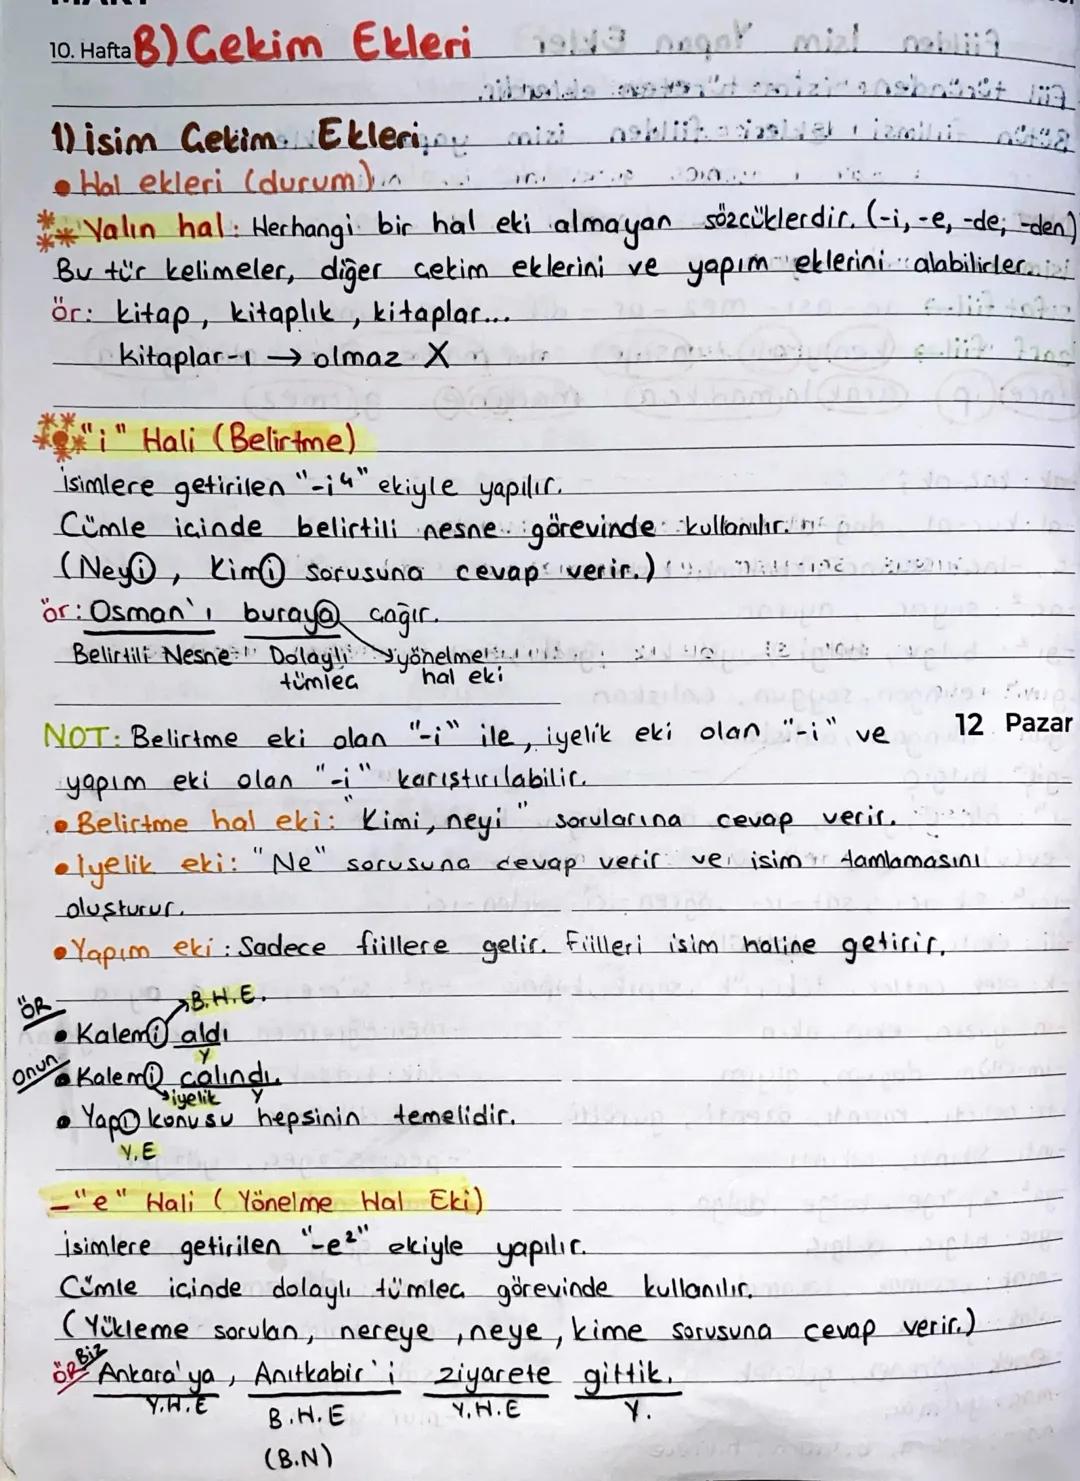 10. Hafta B) Çekim Ekleri
1) isim Çekim Ekleri
• Hal ekleri (durum)
Yalın hal: Herhangi bir hal eki almayan sözcüklerdir. (-i, -e, -de, -den)
Bu tür kelimeler, diğer çekim eklerini ve yapım eklerini alabilirler.
ör: kitap, kitaplık, kitaplar...
kitaplar-ı → olmaz X
"i" Hali (Belirtme)
isimlere getirilen "-i⁴" ekiyle yapılır.
Cümle içinde belirtili nesne görevinde kullanılır.
(Neyi, Kimi sorusuna cevap verir.)
ör: Osman'ı buraya çağır.
Belirtili Nesne Dolaylı yönelme
tümleç hal eki
NOT: Belirtme eki olan "-i" ile, iyelik eki olan "-i" ve
12 Pazar
yapım eki olan "-i" karıştırılabilir.
• Belirtme hal eki: "Kimi, neyi" sorularına cevap verir.
• İyelik eki: "Ne" sorusuna cevap verir ve isim tamlamasını
oluşturur.
• Yapım eki: Sadece fiillere gelir. Fiilleri isim haline getirir.
ÖR B.H.E.
• Kalemi aldı
Y
Onun • Kalemi çalındı.
iyelik Y
• Yapı konusu hepsinin temelidir.
Y.E
-"e" Hali (Yönelme Hal Eki)
isimlere getirilen "-e²" ekiyle yapılır.
Cümle içinde dolaylı tümleç görevinde kullanılır.
(Yükleme sorulan, nereye, neye, kime sorusuna cevap verir.)
ÖR Biz Ankara'ya, Anıtkabir'i ziyarete gittik.
Y.H.E B.H.E Y.H.E Y.
(B.N)